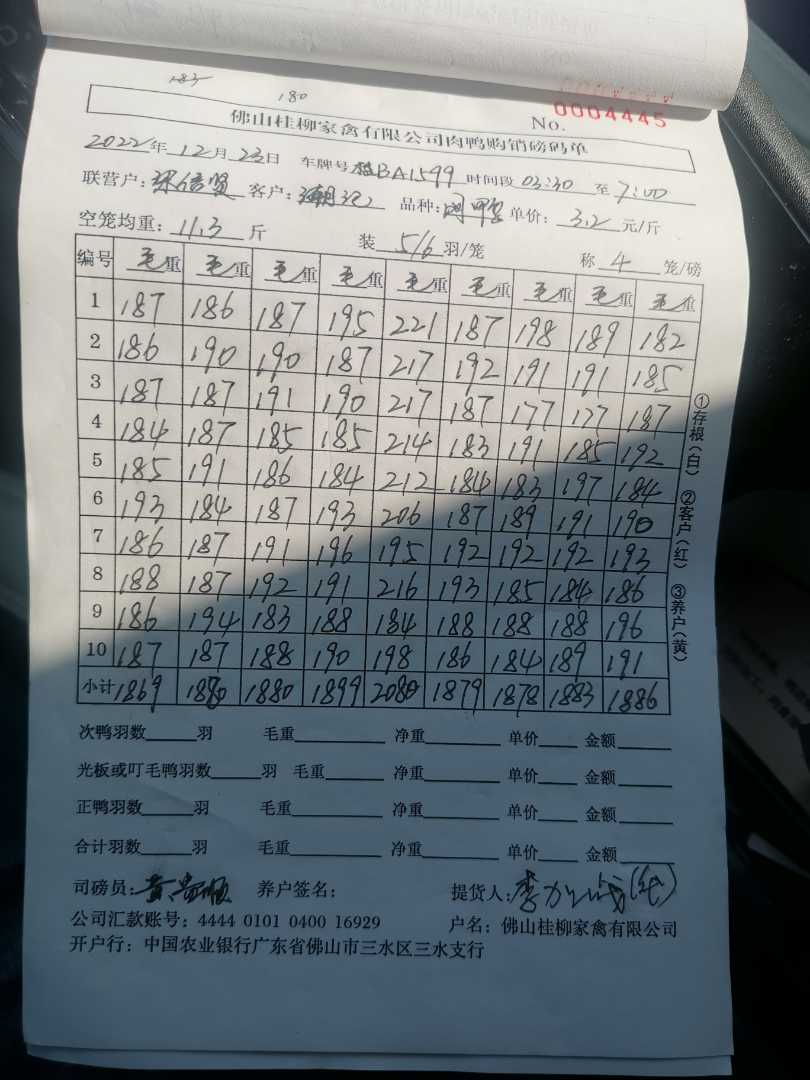 183
180
No. 0004445
佛山桂柳家禽有限公司肉鸭购销磅码单
2022年12月23日 车牌号 BA1599 时间段 03:30 至 7:00
联营户: 客户:潮记 品种: 单价: 3.2 元/斤
空笼均重: 11.3 斤 装 5/6 羽/笼 称 4 笼/磅
编号 毛重 毛重 毛重 毛重 毛重 毛重 毛重 毛重 毛重
1 187 186 187 195 221 187 198 189 182
2 186 190 190 187 217 192 191 191 185
3 187 187 191 190 217 187 177 177 187
4 184 187 185 185 214 183 191 185 192
5 185 191 186 184 212 184 183 197 184
6 193 184 187 193 206 187 189 191 190
7 186 187 191 196 195 192 192 192 193
8 188 187 192 191 216 193 185 184 186
9 186 194 183 188 184 188 188 188 196
10 187 187 188 190 198 186 184 189 191
小计 1869 1880 1880 1899 2080 1879 1878 1883 1886
①存根(白) ②客户(红) ③养户(黄)
次鸭羽数 羽 毛重 净重 单价 金额
光板或叮毛鸭羽数 羽 毛重 净重 单价 金额
正鸭羽数 羽 毛重 净重 单价 金额
合计羽数 羽 毛重 净重 单价 金额
司磅员: 养户签名: 提货人:
公司汇款账号: 4444 0101 0400 16929 户名: 佛山桂柳家禽有限公司
开户行: 中国农业银行广东省佛山市三水区三水支行